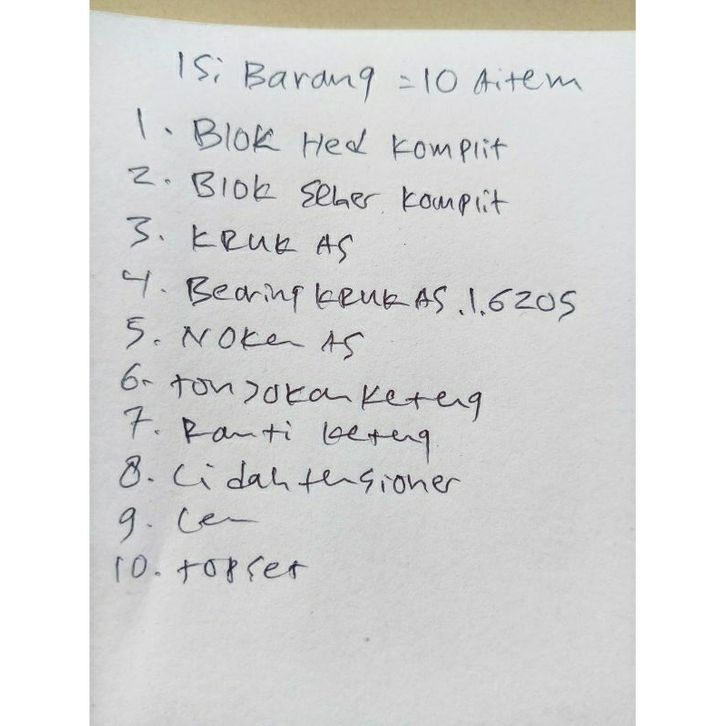 ISi Barang = 10 Aitem
1. Blok Hed Komplit
2. Blok Seher Komplit
3. KRUK AS
4. Bearing KRUK AS .1.6205
5. NOKen AS
6. tonjokan Keteng
7. Ranti keteng
8. Lidah tensioner
9. Lem
10. topset